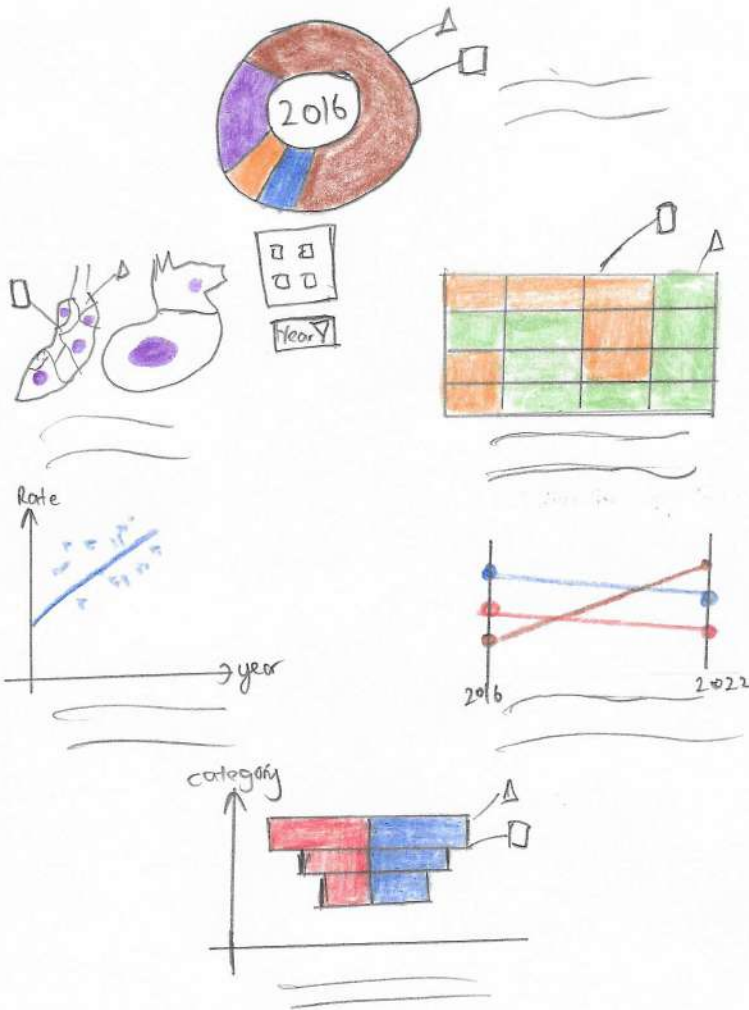 2016
Year
Rate
year
2016
2022
category